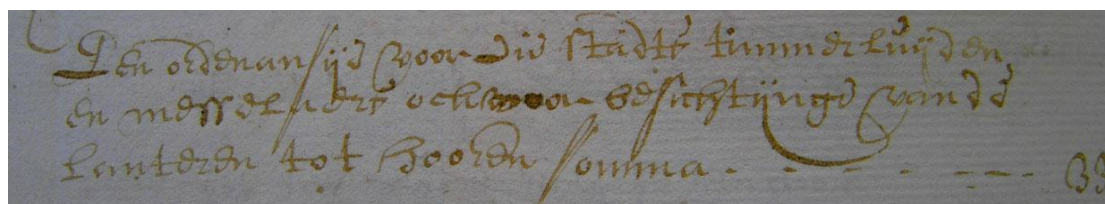 Een ordenansijd voor die stadts timmerluijden
en messelaers och voor besichtijnge van dé
lanteren tot hooren somma - - - - - - 33